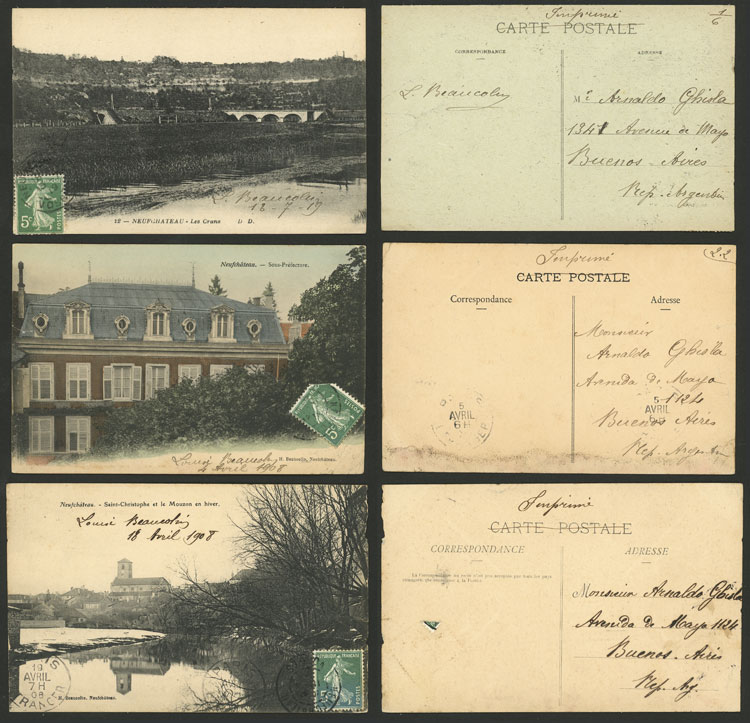 5c
POSTES
L. Beaucolin
12 — NEUFCHATEAU - Les Grans D. D.
Imprimé
1/6
CARTE POSTALE
CORRESPONDANCE
ADRESSE
L. Beaucolin
Mr Arnaldo Ghisla
1347 Avenue de Mayo
Buenos-Aires
Rep. Argentin
Neufchâteau. — Sous-Préfecture.
Louise Beaucolin
4 Avril 1908
Imprimé
CARTE POSTALE
Correspondance
Adresse
5
AVRIL
6H
Monsieur
Arnaldo Ghisla
Avenida de Mayo
1124
5
AVRIL
Buenos Aires
Rep. Argentin
Neufchâteau. - Saint-Christophe et le Mouzon en hiver.
Louise Beaucolin
18 Avril 1908
19
AVRIL
7H
08
H. Beaucolin, Neufchâteau.
Imprimé
CARTE POSTALE
CORRESPONDANCE
ADRESSE
Monsieur Arnaldo Ghisla
Avenida de Mayo 1124
Buenos-Aires
Rep. Arg.